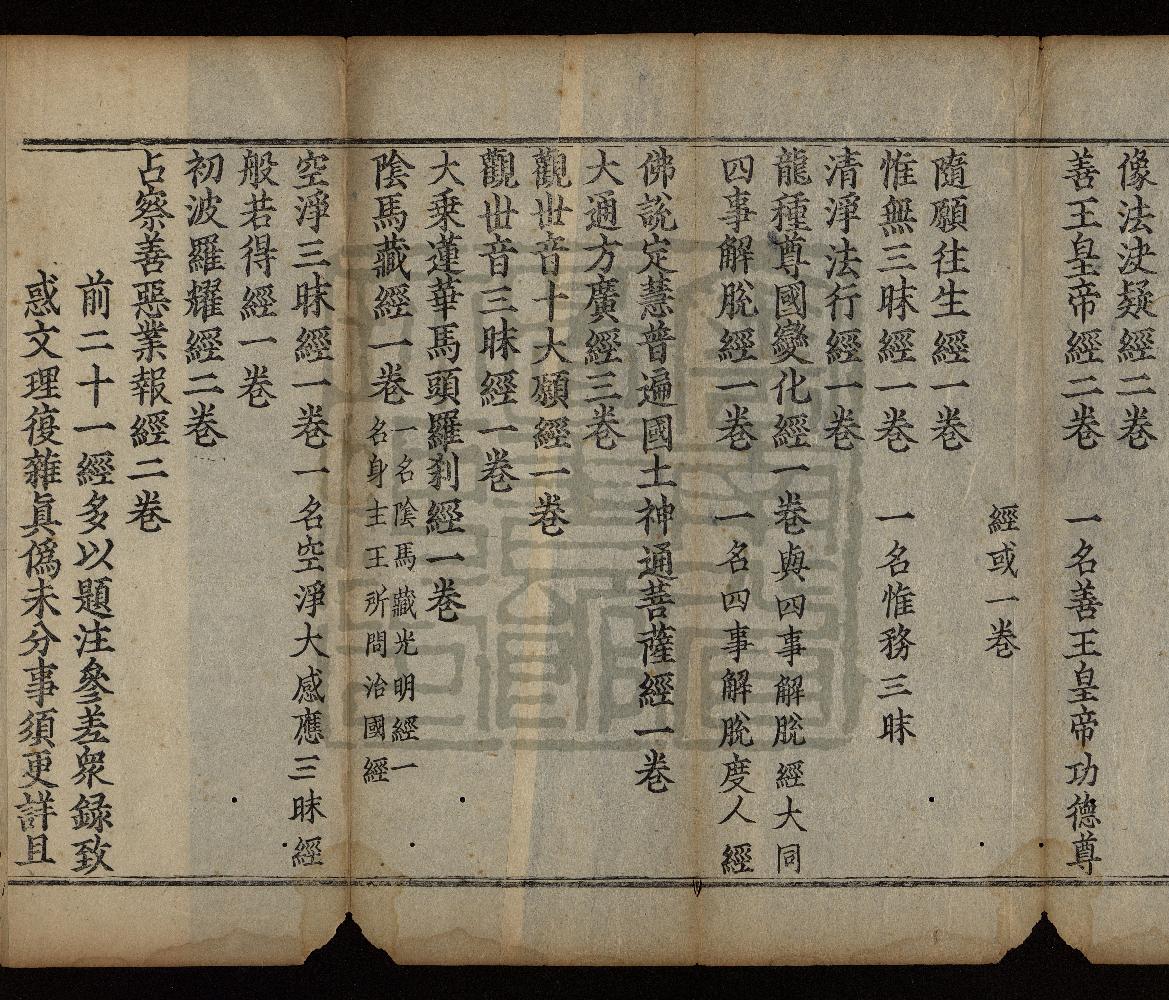 像法決疑經二卷
善王皇帝經二卷 一名善王皇帝功德尊
經或一卷
隨願往生經一卷
惟無三昧經一卷 一名惟務三昧
清淨法行經一卷
龍種尊國變化經一卷與四事解脫經大同
四事解脫經一卷 一名四事解脫度人經
佛說定慧普遍國土神通菩薩經一卷
大通方廣經三卷
觀世音十大願經一卷
觀世音三昧經一卷
大乘蓮華馬頭羅剎經一卷
陰馬藏經一卷 一名陰馬藏光明經一
名身主王所問治國經
空淨三昧經一卷一名空淨大感應三昧經
般若得經一卷
初波羅耀經二卷
占察善惡業報經二卷
前二十一經多以題注參差眾録致
惑文理復雜真偽未分事須更詳且